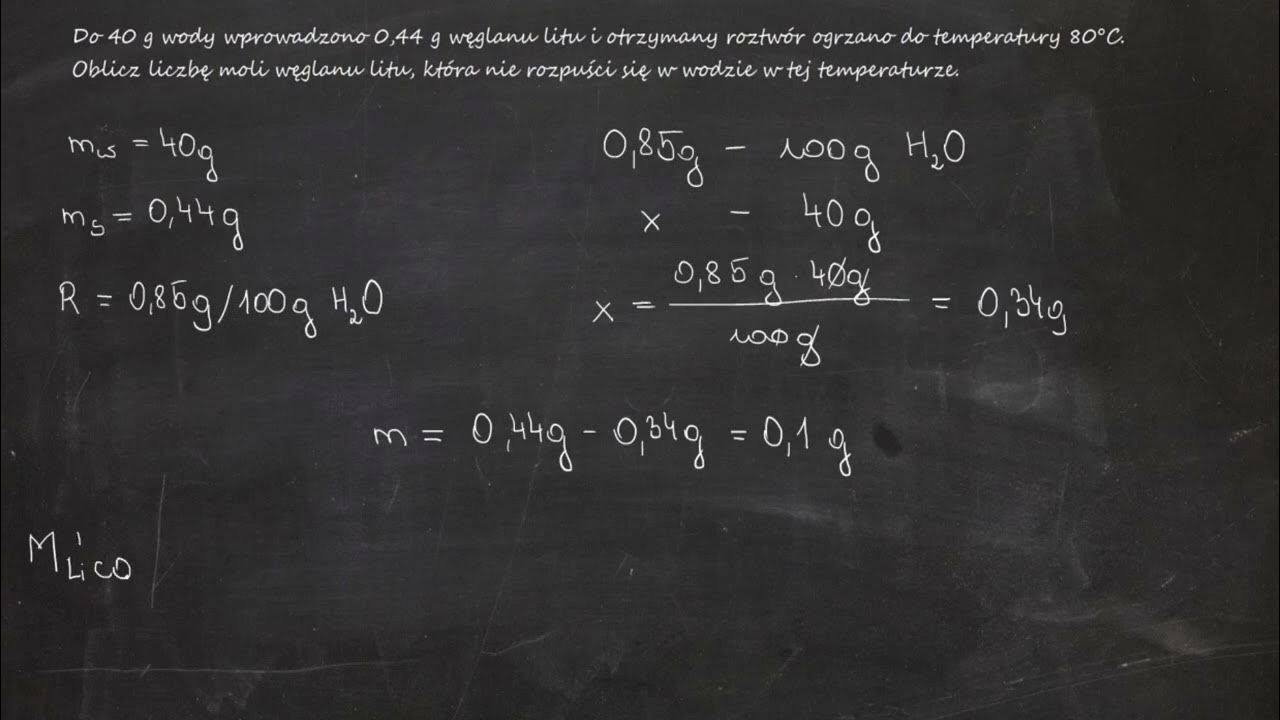 Do 40 g wody wprowadzono 0,44 g węglanu litu i otrzymany roztwór ogrzano do temperatury 80°C.
Oblicz liczbę moli węglanu litu, która nie rozpuści się w wodzie w tej temperaturze.
m_w = 40g
m_s = 0,44g
R = 0,85g/100g H₂O
0,85g – 100g H₂O
x – 40g
x = 0,85g · 40g / 100g = 0,34g
m = 0,44g – 0,34g = 0,1 g
M LiCO